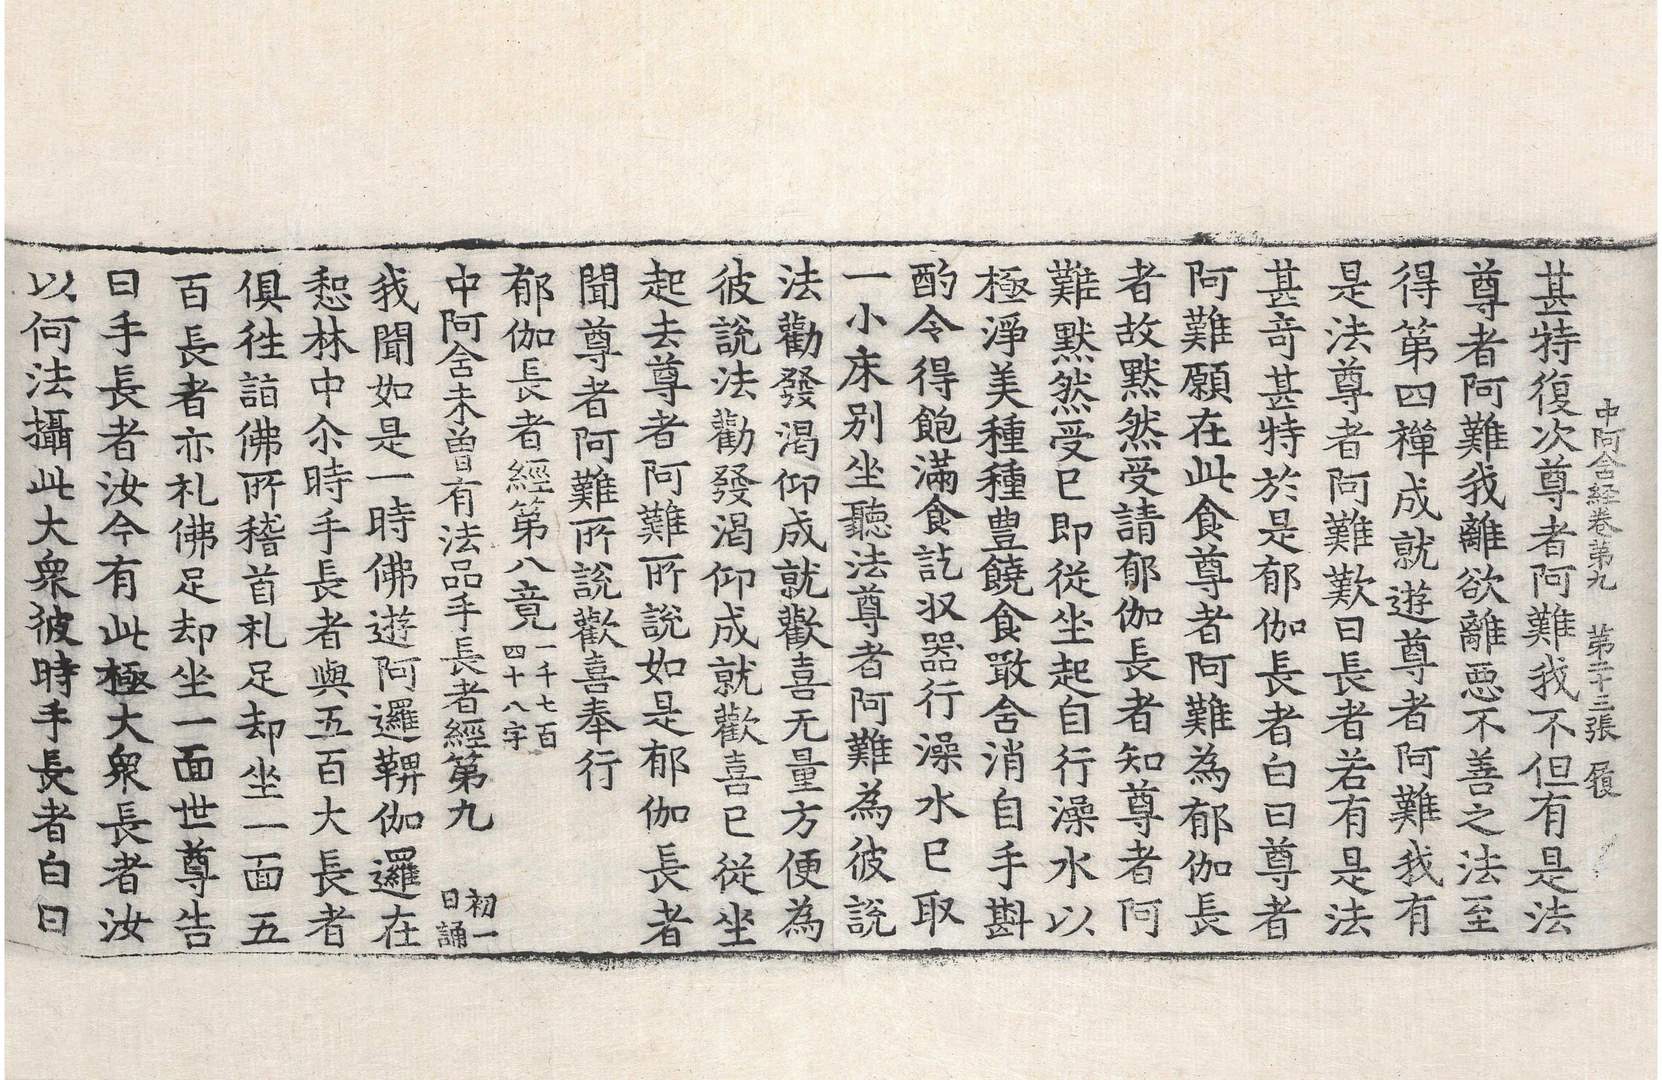 中阿含経卷第九　第二十三張　履
甚特復次尊者阿難我不但有是法
尊者阿難我離欲離惡不善之法至
得第四禪成就遊尊者阿難我有
是法尊者阿難歎曰長者若有是法
甚奇甚特於是郁伽長者白曰尊者
阿難願在此食尊者阿難為郁伽長
者故默然受請郁伽長者知尊者阿
難默然受已即從坐起自行澡水以
極淨美種種豊饒食噉含消自手斟
酌令得飽滿食訖収器行澡水已取
一小床別坐聽法尊者阿難為彼說
法勸發渴仰成就歡喜无量方便為
彼說法勸發渴仰成就歡喜已從坐
起去尊者阿難所說如是郁伽長者
聞尊者阿難所說歡喜奉行
郁伽長者經第八竟一千七百四十八字
中阿含未曽有法品手長者經第九　初一日誦
我聞如是一時佛遊阿邏鞞伽邏在
惒林中尒時手長者與五百大長者
俱徃詣佛所稽首礼足却坐一面五
百長者亦礼佛足却坐一面世尊告
曰手長者汝今有此極大衆長者汝
以何法攝此大衆彼時手長者白曰